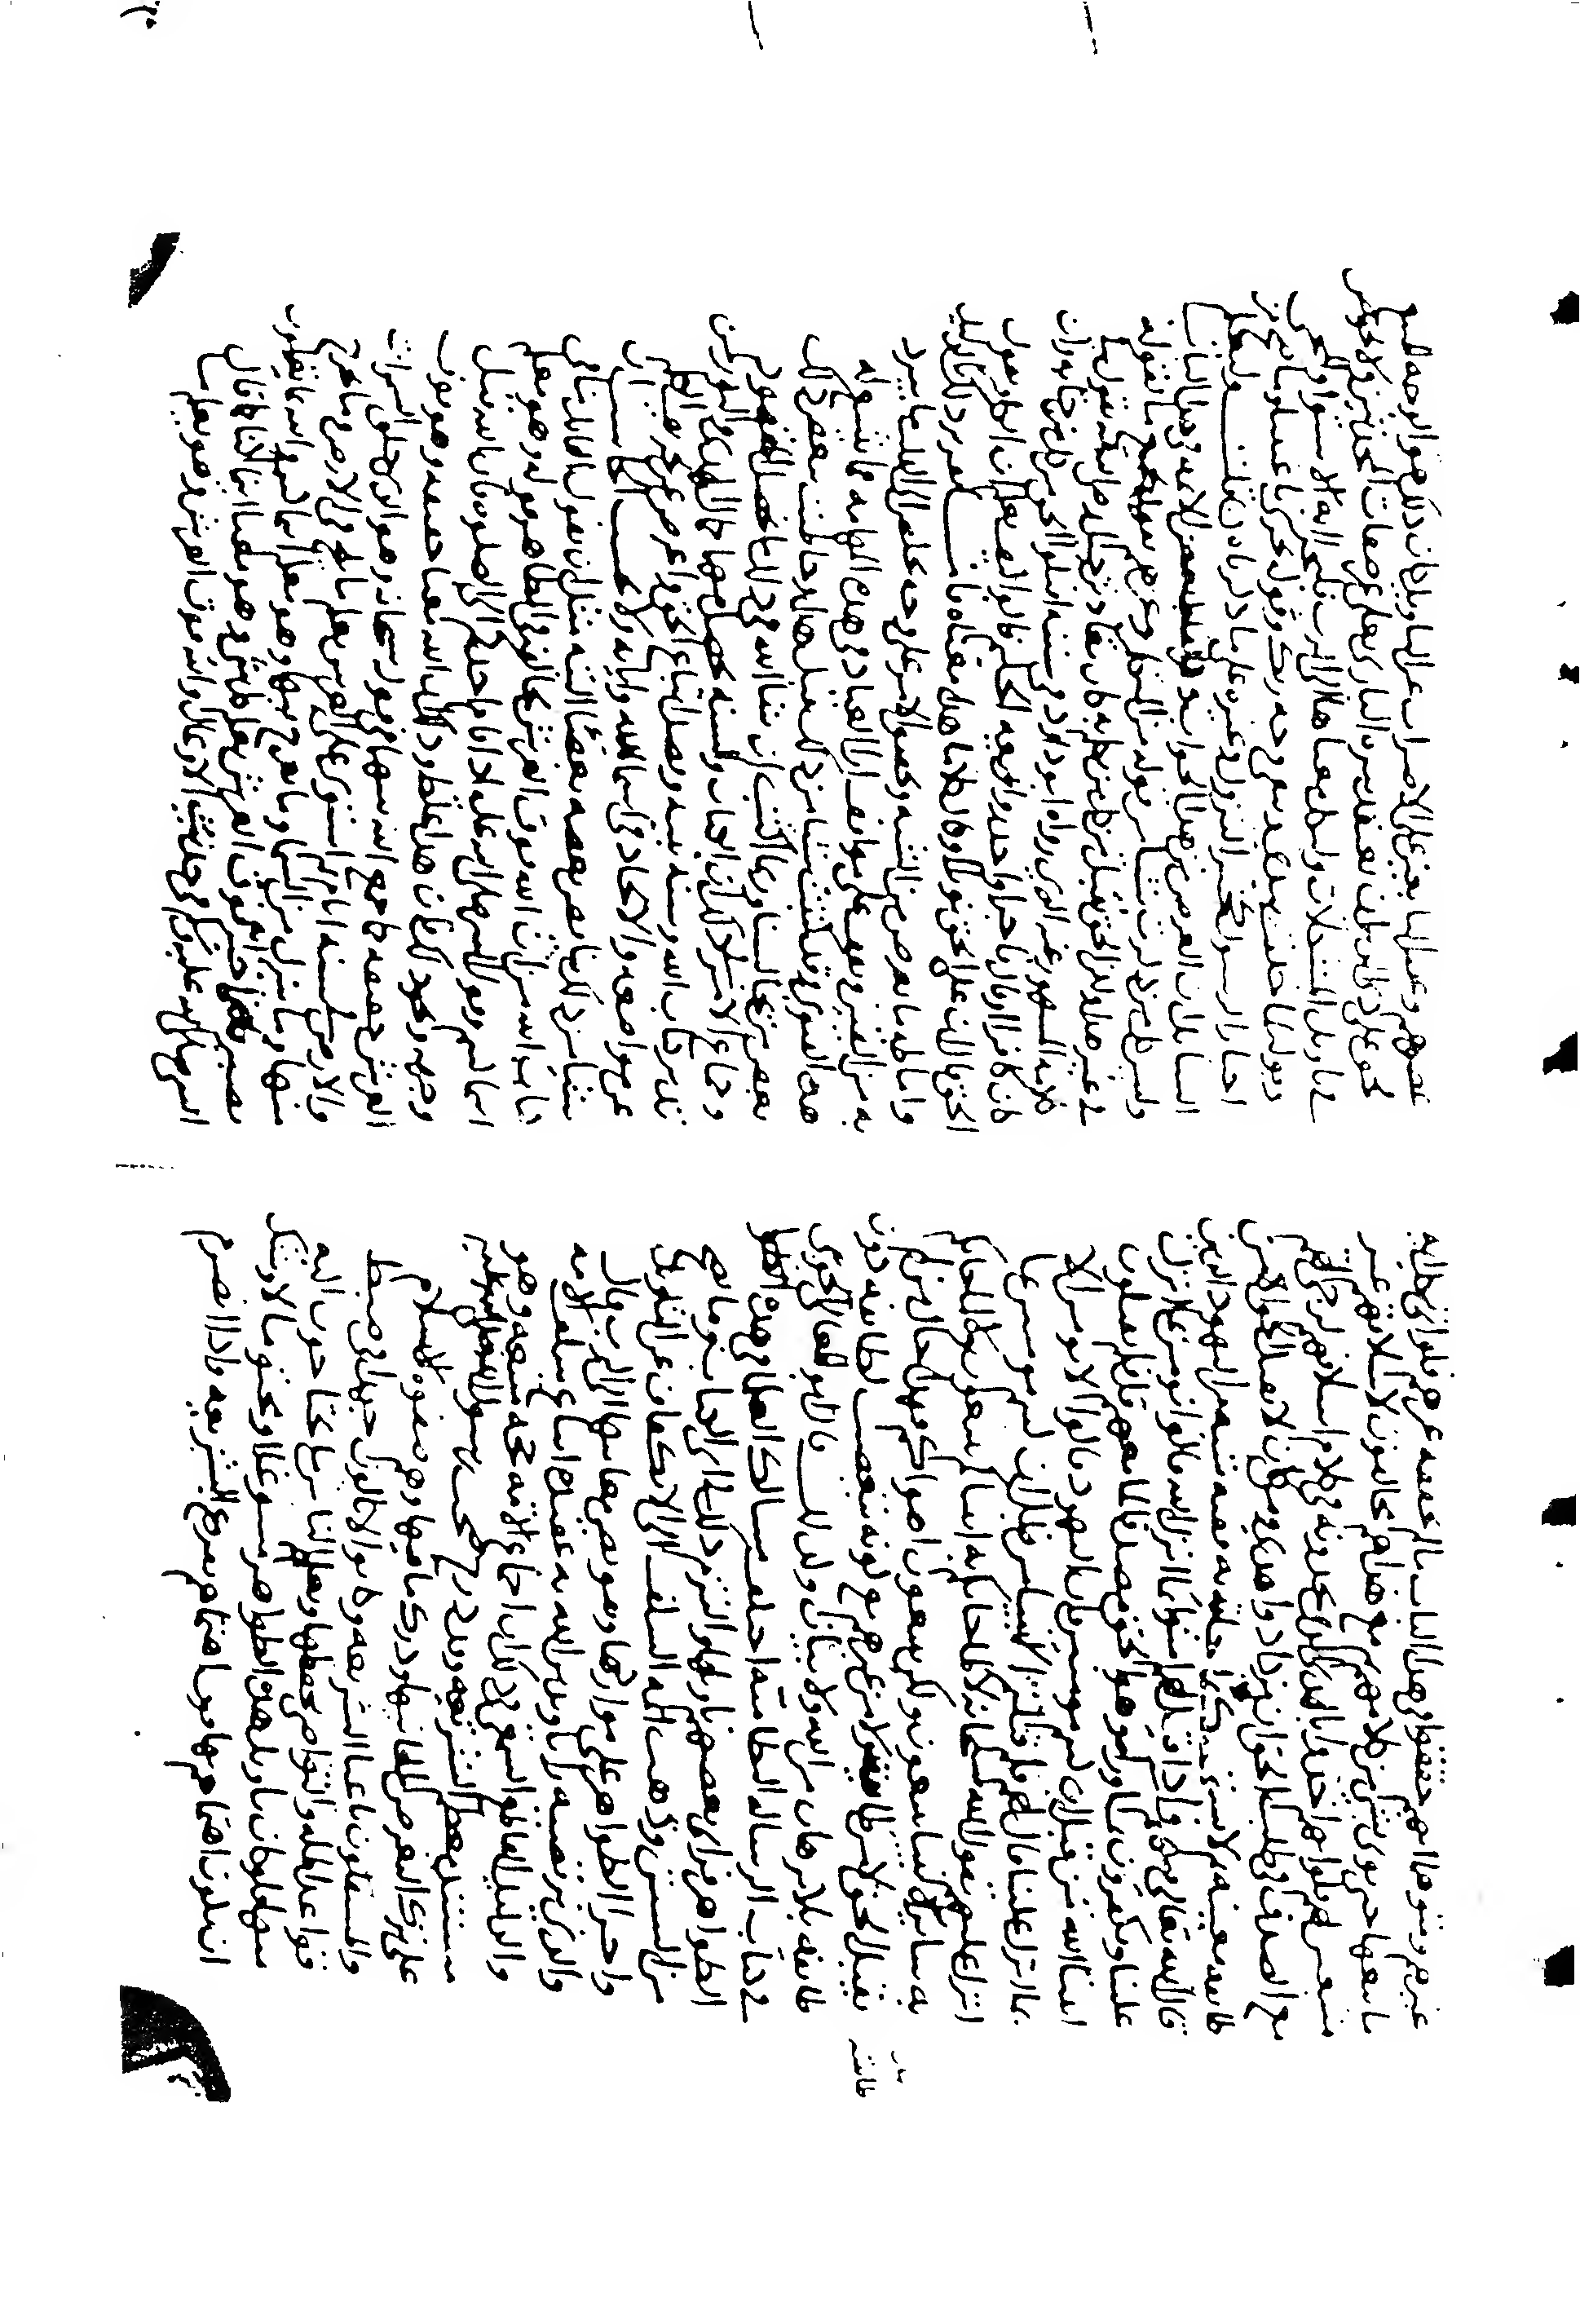 غيرهم وتوهموا انهم حققوا في هذا الباب ما لم يحققه غيرهم فلو اتى بكل ايه
ما تبعها حتى يوتى بشي من كلامهم ثم هم مع هذا مخالفون لاسلافهم غير
متبعين لهم فلو انهم اخذوا بالهدى الذي يجدونه في كلام اسلافهم لرجي لهم
مع الصدق في طلب الحق ان يزدادوا هدى ومن كان لا يقبل الحق الا من
طايفه معينه ثم لا يتمسك بما جات به ففيه شبه من اليهود الذين
قال الله تعالى فيهم واذا قيل لهم امنوا بما انزل الله قالوا نومن بما انزل
علينا ويكفرون بما وراه وهو الحق مصدقا لما معهم قل فلم تقتلون
انبيا الله من قبل ان كنتم مومنين فان اليهود قالوا لا نومن الا
بما انزل علينا قال الله لهم فلم قتلتم الانبيا من قبل ان كنتم مومنين بما
انزل عليكم يقول الله سبحانه لا لما جاتكم به انبياوكم تتبعون ولا لما جاتكم
به ساير الانبيا تتبعون ولكن تتبعون اهواكم فهذا حال من لم
يقبل الحق لا من طايفته ولا من غيرهم مع كونه يتعصب لطايفه دون
طايفه بلا برهان من الله ولا بيان وكذلك قال ابو المعالي الجويني
في كتاب الرساله النظاميه اختلف مسالك العلما في هذه
الظواهر فراى بعضهم تاويلها والتزم ذلك في اي الكتاب وما يصح
من السنن وذهب ايمه السلف الى الانكفاف عن التاويل
واجرا الظواهر على مواردها وتفويض معانيها الى الرب وقال
والذي نرتضيه رايا وندين الله به عقيده اتباع سلف الامه
والدليل القاطع السمعي في ذلك ان اجماع الامه حجه متبعه وهو
مستند معظم الشريعه وقد درج صحب رسول الله صلى الله عليه
على ترك التعرض لمعانيها ودرك ما فيها وهم صفوه الاسلام
والمستقلون باعبا الشريعه وكانوا لا يالون جهدا في ضبط
قواعد المله والتواصي بحفظها وتعليم الناس ما يحتاجون اليه
منها فلو كان تاويل هذه الظواهر مسوغا او محتوما لاوشك
ان يكون اهتمامهم بها فوق اهتمامهم بفروع الشريعه واذا انصرم
عصرهم وعصر التابعين على الاضراب عن التاويل كان ذلك هو الوجه المتبع
فحق على ذي الدين ان يعتقد تنزه الباري تعالى عن صفات المحدثين ولا يخوض
في تاويل المشكلات ويكل معناها الى الرب فليجر ايه الاستوا والمجي
وقوله لما خلقت بيدي ويبقى وجه ربك وقوله تجري باعيننا وما صح من
اخبار الرسول كخبر النزول وغيره على ما ذكرناه قلت وليعلم
السايل ان الغرض من هذا الجواب ذكر الفاظ بعض الايمه في هذا الباب
وليس كل من ذكرنا شيا من قوله من المتكلمين وغيرهم نقول بجميع ما يقوله
في غير هذا ولكن الحق يقبل من كل من تكلم به كان معاذ بن جبل يقول في
كلامه المشهور عنه الذي رواه ابو داود في سننه اقبلوا الحق من كل من جا به وان
كان كافرا او قال فاجرا واحذروا زيغه الحكيم قالوا كيف نعلم ان الكافر يقول
الحق قال ان على الحق نورا او كلاما هذا معناه فاما تقرير ذلك بالدليل
واماطه ما يعرض من الشبه وتحقيق الامر على وجه يخلص الى القلب ما يبرد
به من اليقين ويقف على مواقف ارا العباد في هذه المهامه فما تتسع له
هذه الفتوى وقد كتبت شيا من ذلك قبل هذا وخاطبت ببعض ذلك
بعض من يجالسنا وربما اكتب ان شا الله في ذلك ما يحصل المقصود
وجماع الامر في ذلك ان الكتاب والسنه يحصل منهما كمال الهدى والنور لمن
تدبر كتاب الله وسنه نبيه وقصد اتباع الحق واعرض عن تحريف الكلم
عن مواضعه والالحاد في اسما الله واياته ولا يحسب الحاسب ان
شيا من ذلك يناقض بعضه بعضا البته مثل ان يقول القايل ما في
الكتاب والسنه من ان الله فوق العرش يخالفه في الظاهر قوله وهو معكم
اينما كنتم وقول النبي صلى الله عليه اذا قام احدكم الى الصلوه فان الله قبل
وجهه ونحو ذلك فان هذا غلط وذلك ان الله معنا حقيقه وهو فوق
العرش حقيقه كما جمع الله بينهما في قوله سبحانه هو الذي خلق السموات
والارض في سته ايام ثم استوى على العرش يعلم ما يلج في الارض وما يخرج
منها وما ينزل من السما وما يعرج فيها وهو معكم اينما كنتم والله بما تعملون
بصير فاخبر انه فوق العرش يعلم كل شي وهو معنا اينما كنا كما قال
النبي صلى الله عليه وسلم في حديث الاوعال والله فوق العرش وهو يعلم ما